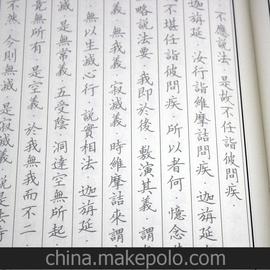 不應說法 是故不任詣彼問疾
迦旃延 汝行詣維摩詰問疾 迦旃延
不堪任詣彼問疾 所以者何 憶念
略說法要 我即於後 敷演其義 謂
義 無我義 寂滅義 時維摩詰來謂
無以生滅心行 說實相法 迦旃延
滅 是無常義 五受陰 洞達空無所起
竟無所有 是空義 於我無我而不二
不然 今則無滅 是寂滅義 說是法時
china.makepolo.com